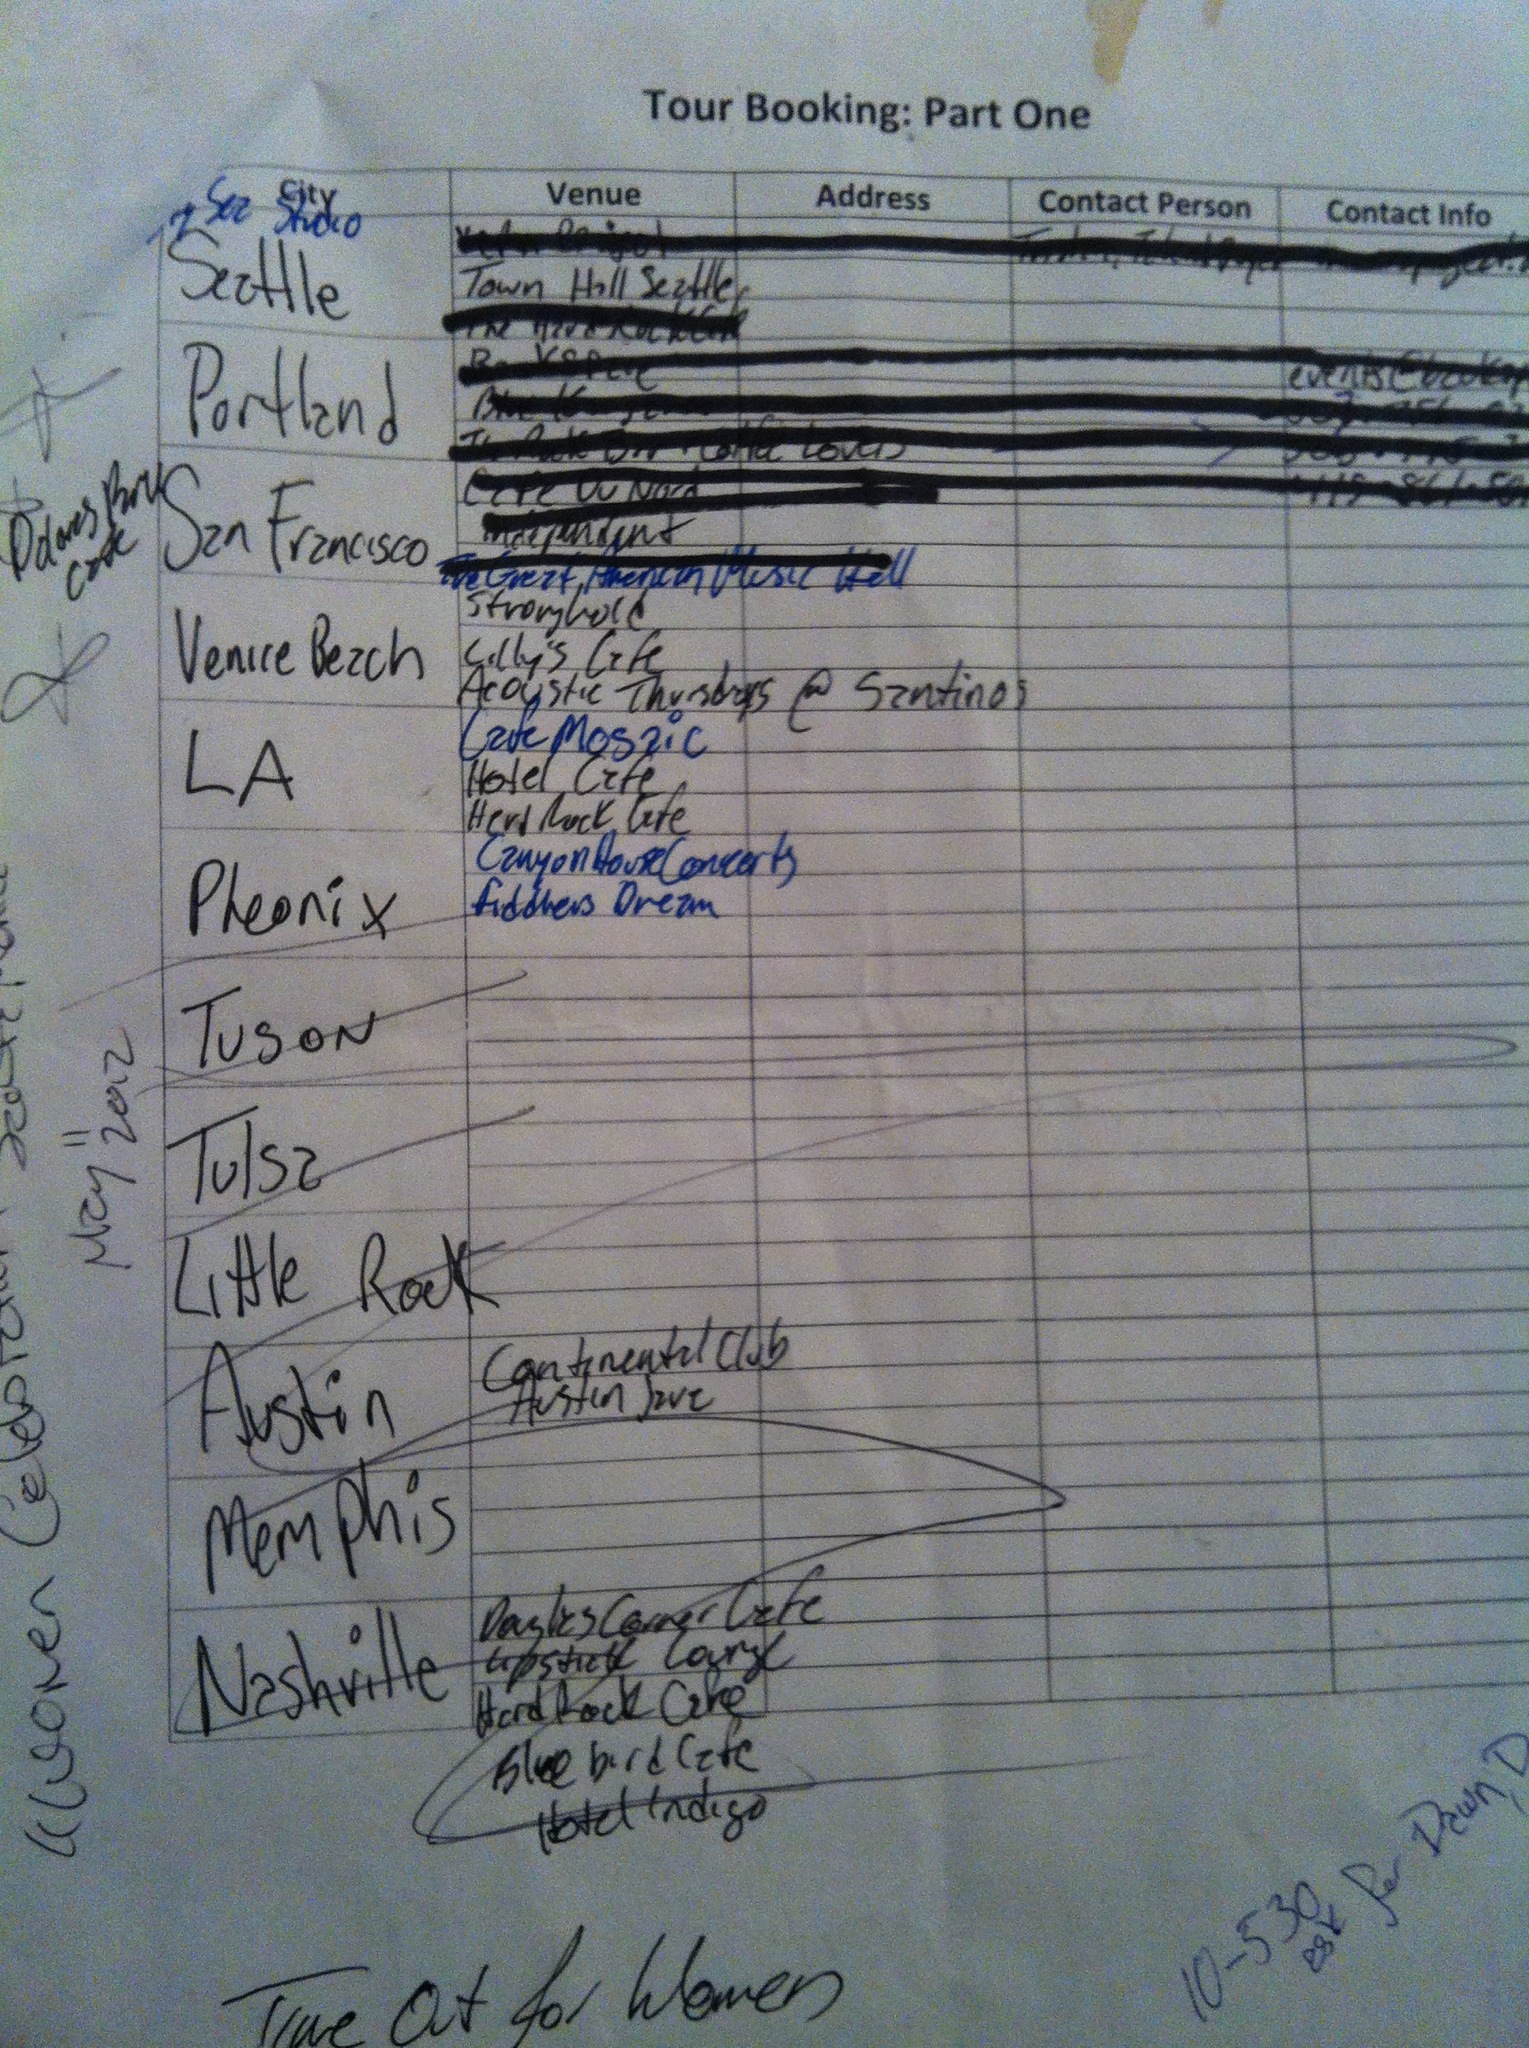 Tour Booking: Part One
City Venue Address Contact Person Contact Info
Studio
Seattle
Town Hall Seattle
The Hard Rock Cafe
Portland
Coffee Lovers
San Francisco
Cafe Du Nord
Independent
The Great American Music Hall
Venice Beach
Stronghold
Lilly's Cafe
Acoustic Thursdays @ Santinos
LA
Cafe Mosaic
Hotel Cafe
Hard Rock Cafe
Pheonix
Canyon House Concerts
Fiddlers Dream
Tuson
Tulsa
Little Rock
Austin
Continental Club
Austin Java
Memphis
Nashville
Douglas Corner Cafe
Lipstick Lounge
Hard Rock Cafe
Blue bird Cafe
Hotel Indigo
May 11 2012
Women Celebration
Time Out for Women
10-530
ask for Dawn D